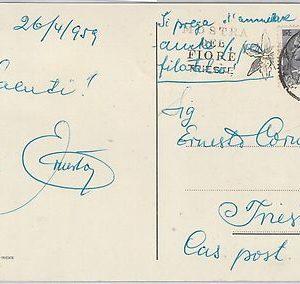 26/4/959
Saluti!
Ernesto
Si prega d'annullare
anche il
filatel
MOSTRA
DEL
FIORE
TRIESTE
Sig
Ernesto Coru
Tries
Cas post.